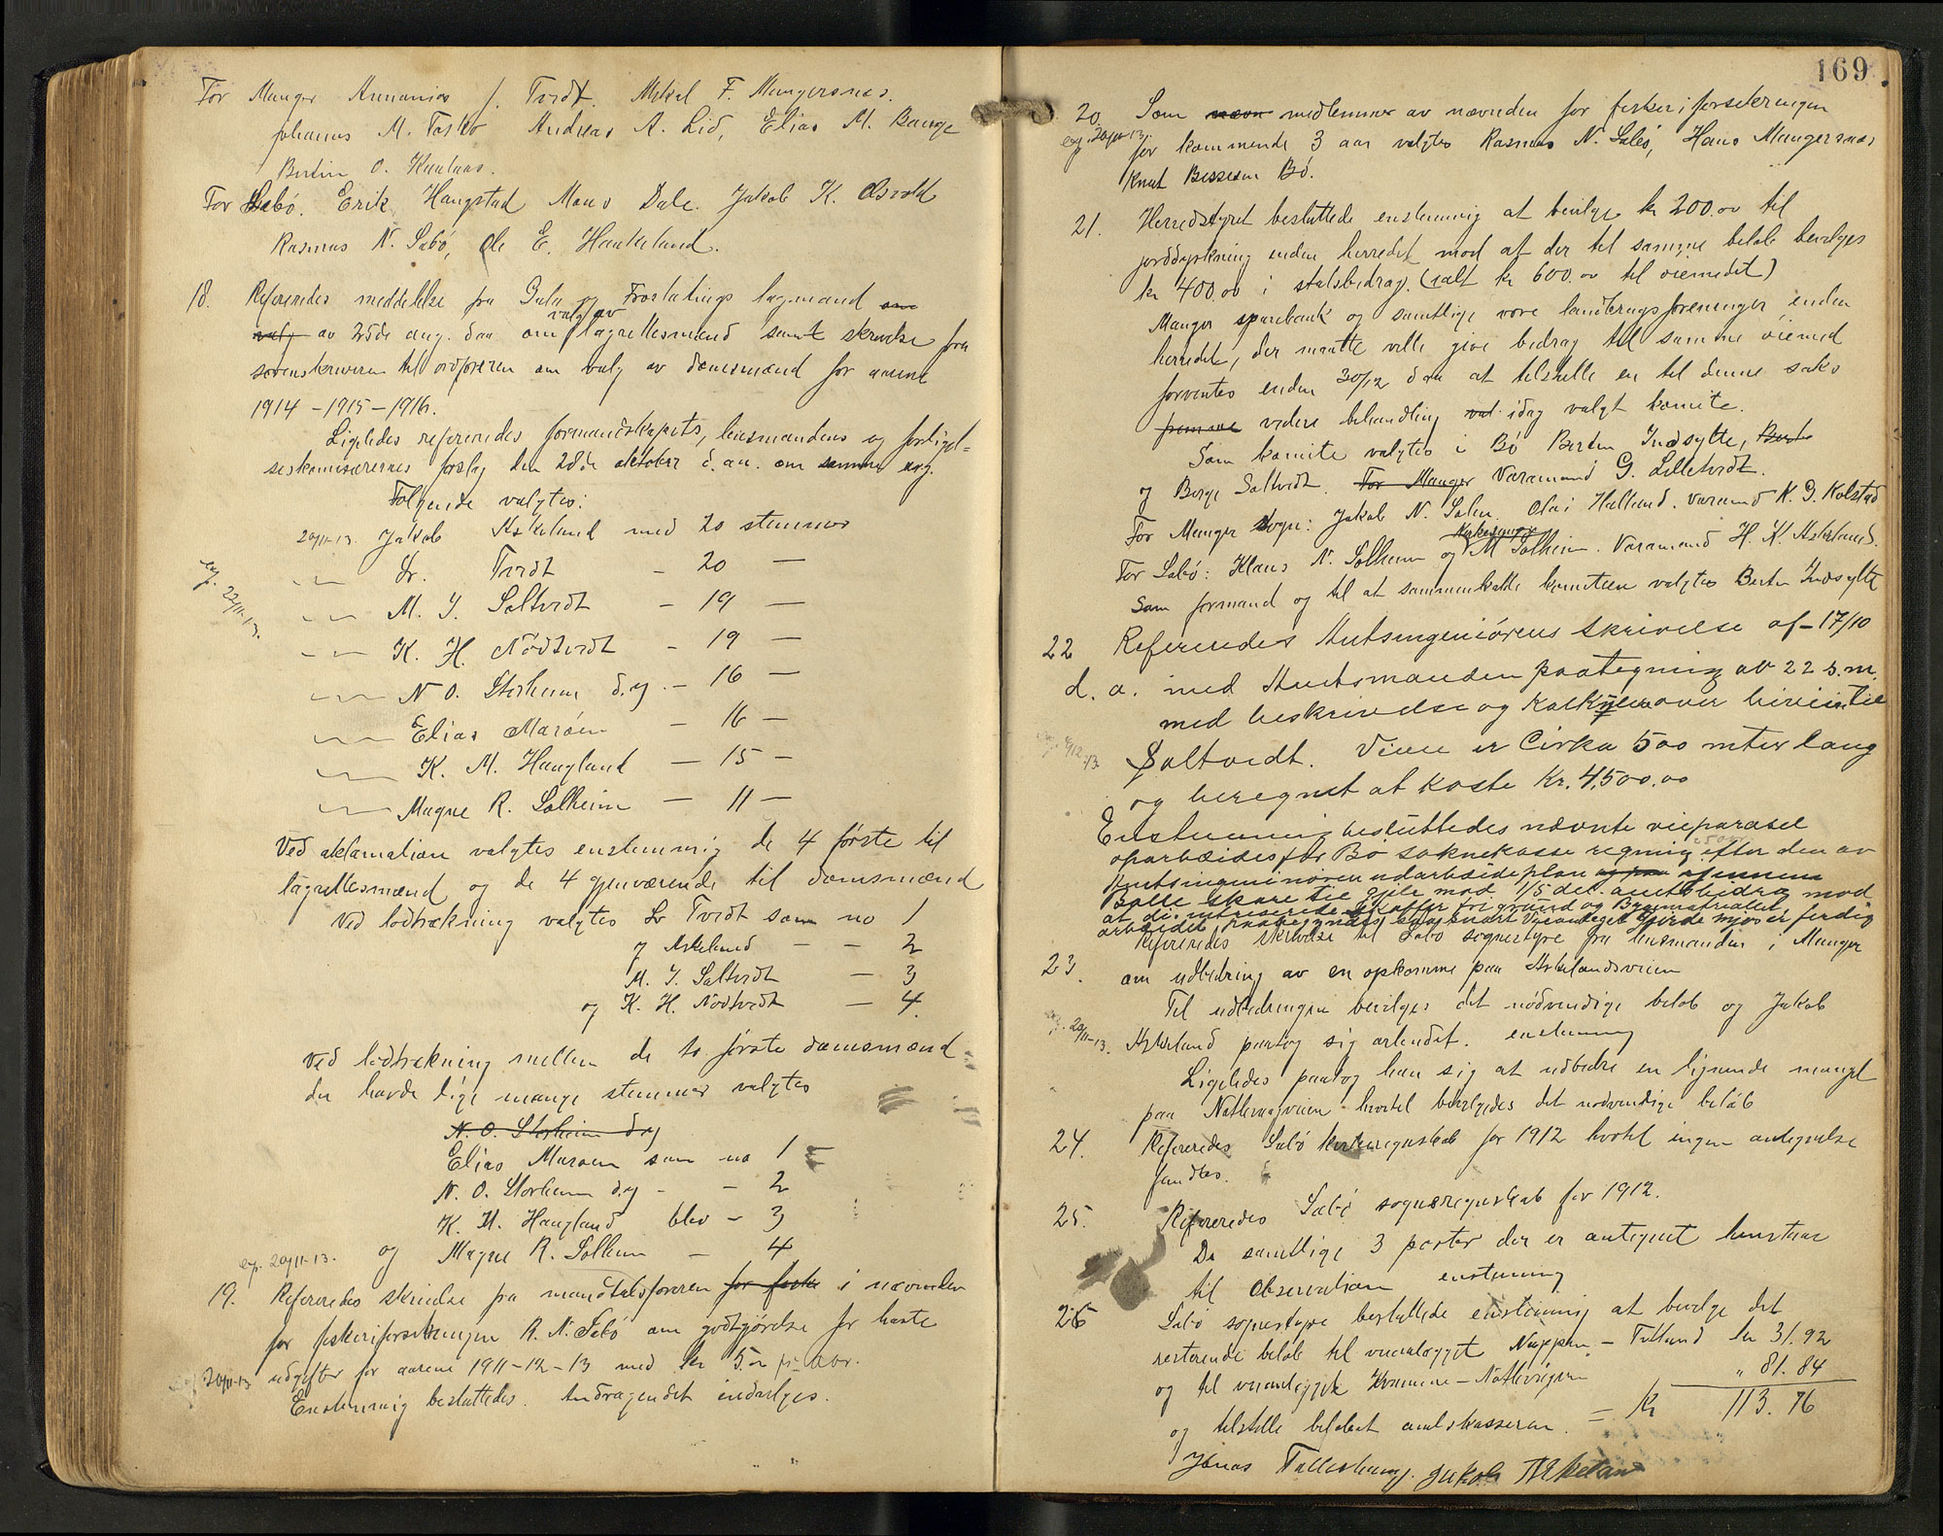 For Manger Annanias J. Tvedt. Mikal F. Mangersnes.
Johanns M. Toskø Andreas A. Lid, Elias M. Bauge
Bertin O. Kaulaas.
For Sæbø. Erik Haugstad Mons Dale. Jakob K. Øsvold
Rasmus N. Sæbø, Ole E. Haukeland.
18. Refereredes meddelelse fra Gula og Frostatings lagmand
av 25de aug. d.aa. om valg av lagrettesmænd samt skrivelse fra
sorenskriveren til ordføreren om valg av domsmænd for aarene
1914 - 1915 - 1916.
Ligeledes refereredes formandskapets, lensmandens og forligel=
seskomisærernes forslag den 28de oktober d. aa. om samme
Følgende valgtes:
20/11-13. Jakob Askeland med 20 stemmer
Sr. Tvedt - 20 —
exp. 22/11-13.
M. J. Saltvedt - 19 —
K. H. Nødtvedt - 19 —
N. O. Storheim d.y. - 16 —
Elias Marøen - 16 —
K. M. Haugland — 15 —
Magne R. Solheim — 11 —
Ved aklamation valgtes enstemmig de 4 første til
lagrettesmænd og de 4 gjenværende til domsmænd
Ved lodtrækning valgtes Sr Tvedt som no 1
J Askeland — — 2
M. J. Saltvedt — 3
og K. H. Nødtvedt — 4.
Ved lodtrækning mellem de to første domsmænd
der havde lige mange stemmer valgtes
N. O. Storheim d.y
Elias Marøen som no 1
N. O. Storheim d.y - - 2
K. M. Haugland blev - 3
exp. 20/11-13. og Magne R. Solheim — 4
19. Refereredes skrivelse fra mandtalsføreren for fiske i nævnden
for fiskeriforsikringen R. N. Sæbø om godtgjørelse for havte
20/11-13 utgifter for aarene 1911-12-13 med kr 5.00 pr. aar.
Enstemmig besluttedes. Andragendet indvilges.
169
20. Som nævn medlemmer av nævnden for fiskeriforsikringen
exp. 20/11-13. for kommende 3 aar valgtes Rasmus N. Sæbø, Hans Mangersnes
Knut Bessesen Bø.
21. Herredstyret besluttede enstemmig at bevilge kr 200.00 til
jorddyrkning inden herredet mod at der til samme beløb bevilges
kr 400.00 i statsbidrag. (ialt kr 600.00 til øiemedet)
Manger sparebank og samtlige vore landbrugsforeninger inden
herredet, der maatte ville give bidrag til samme øiemed
forventes inden 30/12 d aa at tilstille en til denne saks
fremme videre behandling idag valgt komite.
Som komite valgtes i Bø Bertin Indsytte,
og Børge Saltvedt. For Manger Varamand G. Lilletvedt.
For Manger sogn: Jakob N. Solem Olai Halland. Varamd K. G. Kolstad
For Sæbø: Hans N. Solheim og M Solheim. Varamand H. K. Askeland.
Som formand og til at sammenkalde komiteen valgtes Bertin Indsytte
22 Refereredes Amtsingeniørens skrivelse af 17/10
d. a. med Amtsmandens paategning av 22 s.m.
med beskrivelse og Kalkyle over biveien til
Saltvedt. Veien er Cirka 500 meter lang
og beregnet at koste Kr. 4,500.00
Enstemmig besluttedes nævnte veiparasel
oparbeides for Bø soknekasse regning efter den av
Amtsingeniøren udarbeide plan
at de intreserede gjæfter fri grund og Byggematrialer
arbeidet
23. Refereredes skrivelse til Sæbø sognestyre fra lensmanden i Manger
om udbedring av en opkomme paa Askelandsveien
Til udbedringen bevilges det nødvendige beløb og Jakob
20/11-13. Askeland paatog sig arbeidet. enstemmig
Ligeledes paatog han sig at udbedre en lignende mangel
paa Natlevaagveien hvortil bevilgedes det nødvendige beløb
24. Refereredes Sæbø kirkeregnskab for 1912 hvortil ingen antegnelse
fandtes.
25. Refereredes Sæbø sogneregnskab for 1912.
De samtlige 3 poster der er antegnet henstaar
til Observation enstemmig
26 Sæbø sognestyre besluttede enstemmig at bevilge det
resterende beløb til veianlægget Nappen - Tveland kr 31.92
og til veianlægget Kvamme - Natlevigen " 81.84
og tilstille beløbet amtskasseren. = Kr 113.76
Jonas Fallestang. Jakob Askeland